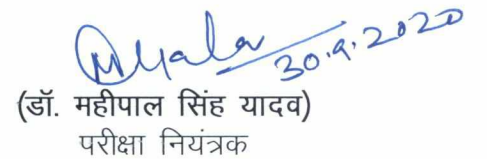 30.9.2020
(डॉ. महीपाल सिंह यादव)
परीक्षा नियंत्रक